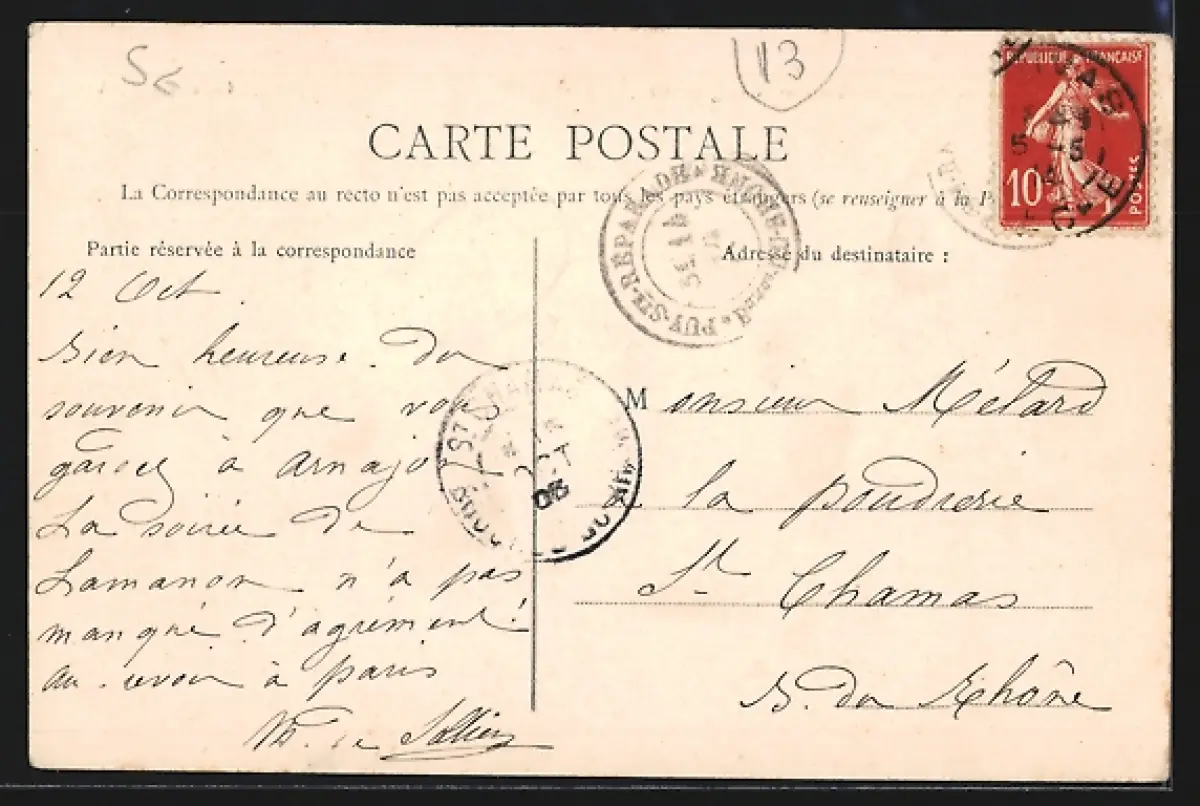 13
CARTE POSTALE
La Correspondance au recto n'est pas acceptée par tous les pays étrangers (se renseigner à la P
RÉPUBLIQUE FRANÇAISE
10
POSTES
Partie réservée à la correspondance
Adresse du destinataire :
PUY-STE-RÉPARADE
B. DU RHONE
12 Oct.
Bien heureuse du
souvenir que vous
gardez à
La soirée de
Lamanon n'a pas
manqué d'agrément!
au revoir à paris
de
ST CHAMAS
OCT
08
Monsieur Métard
la poudrerie
St Chamas
B. du Rhône